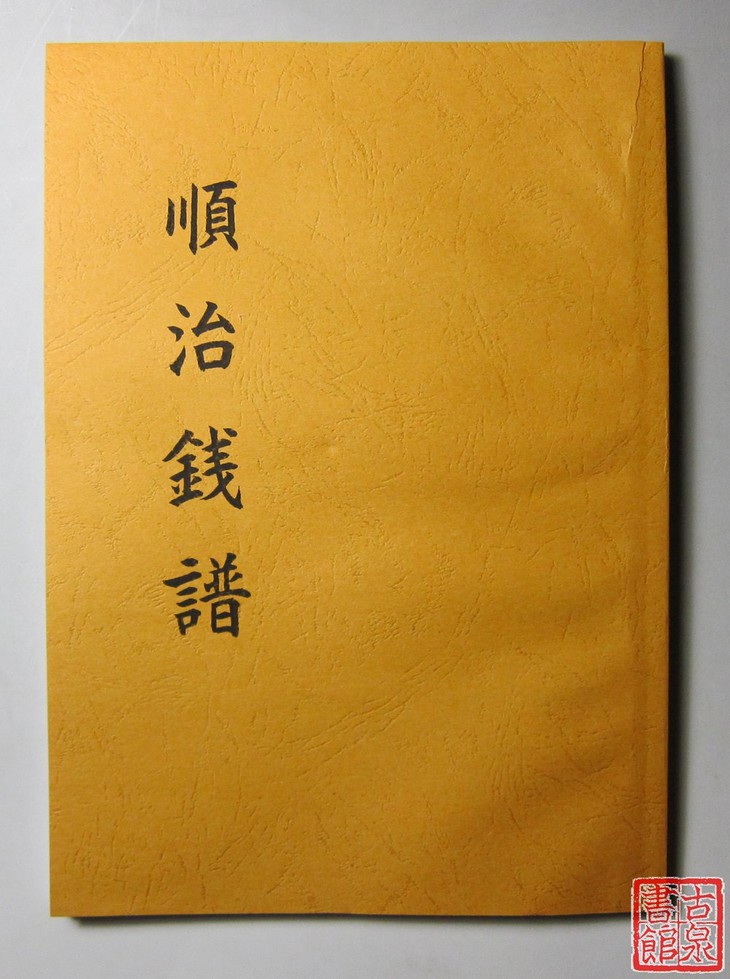 順治銭譜
古泉
書館